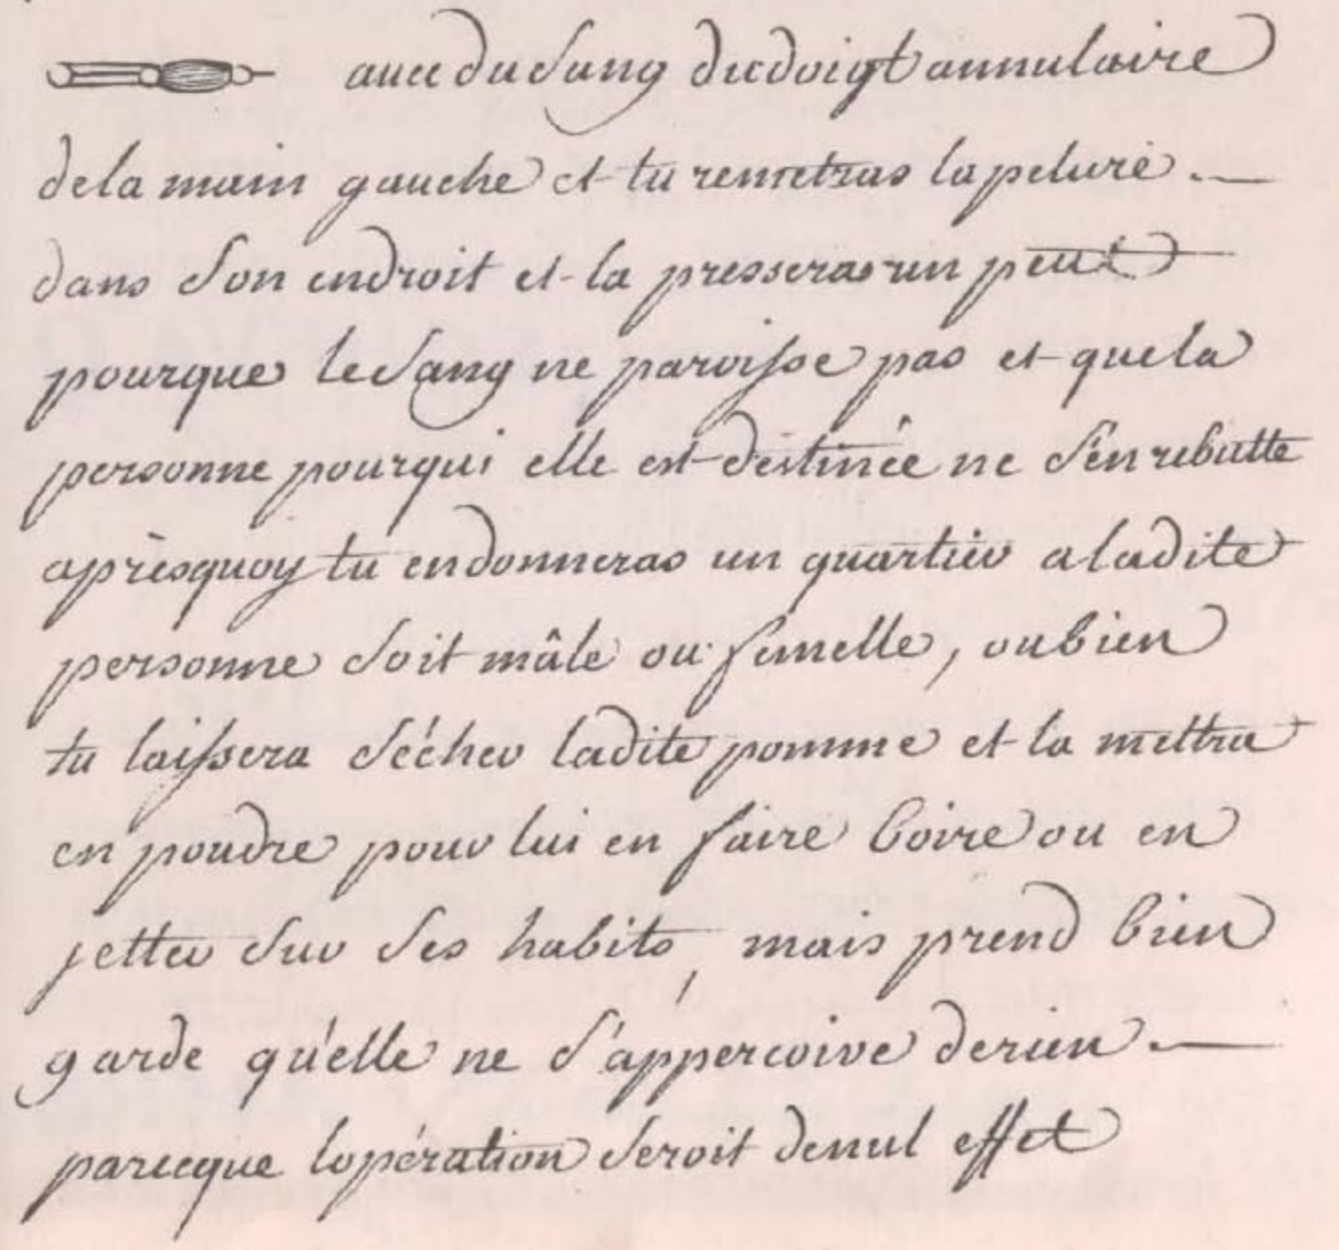 avec du Sang du doigt annulaire
de la main gauche et tu remetras la pelure.
dans Son endroit et la presseras un peu
pourque le Sang ne paroisse pas et que la
personne pour qui elle est destinée ne S'en rebutte
après quoy tu en donneras un quartier a ladite
personne Soit mâle ou femelle, ou bien
tu laissera Sécher ladite pomme et la mettra
en poudre pour lui en faire boire ou en
jetter Sur Ses habits, mais prend bien
garde qu'elle ne S'appercoive de rien.
parceque lopération Seroit de nul effet